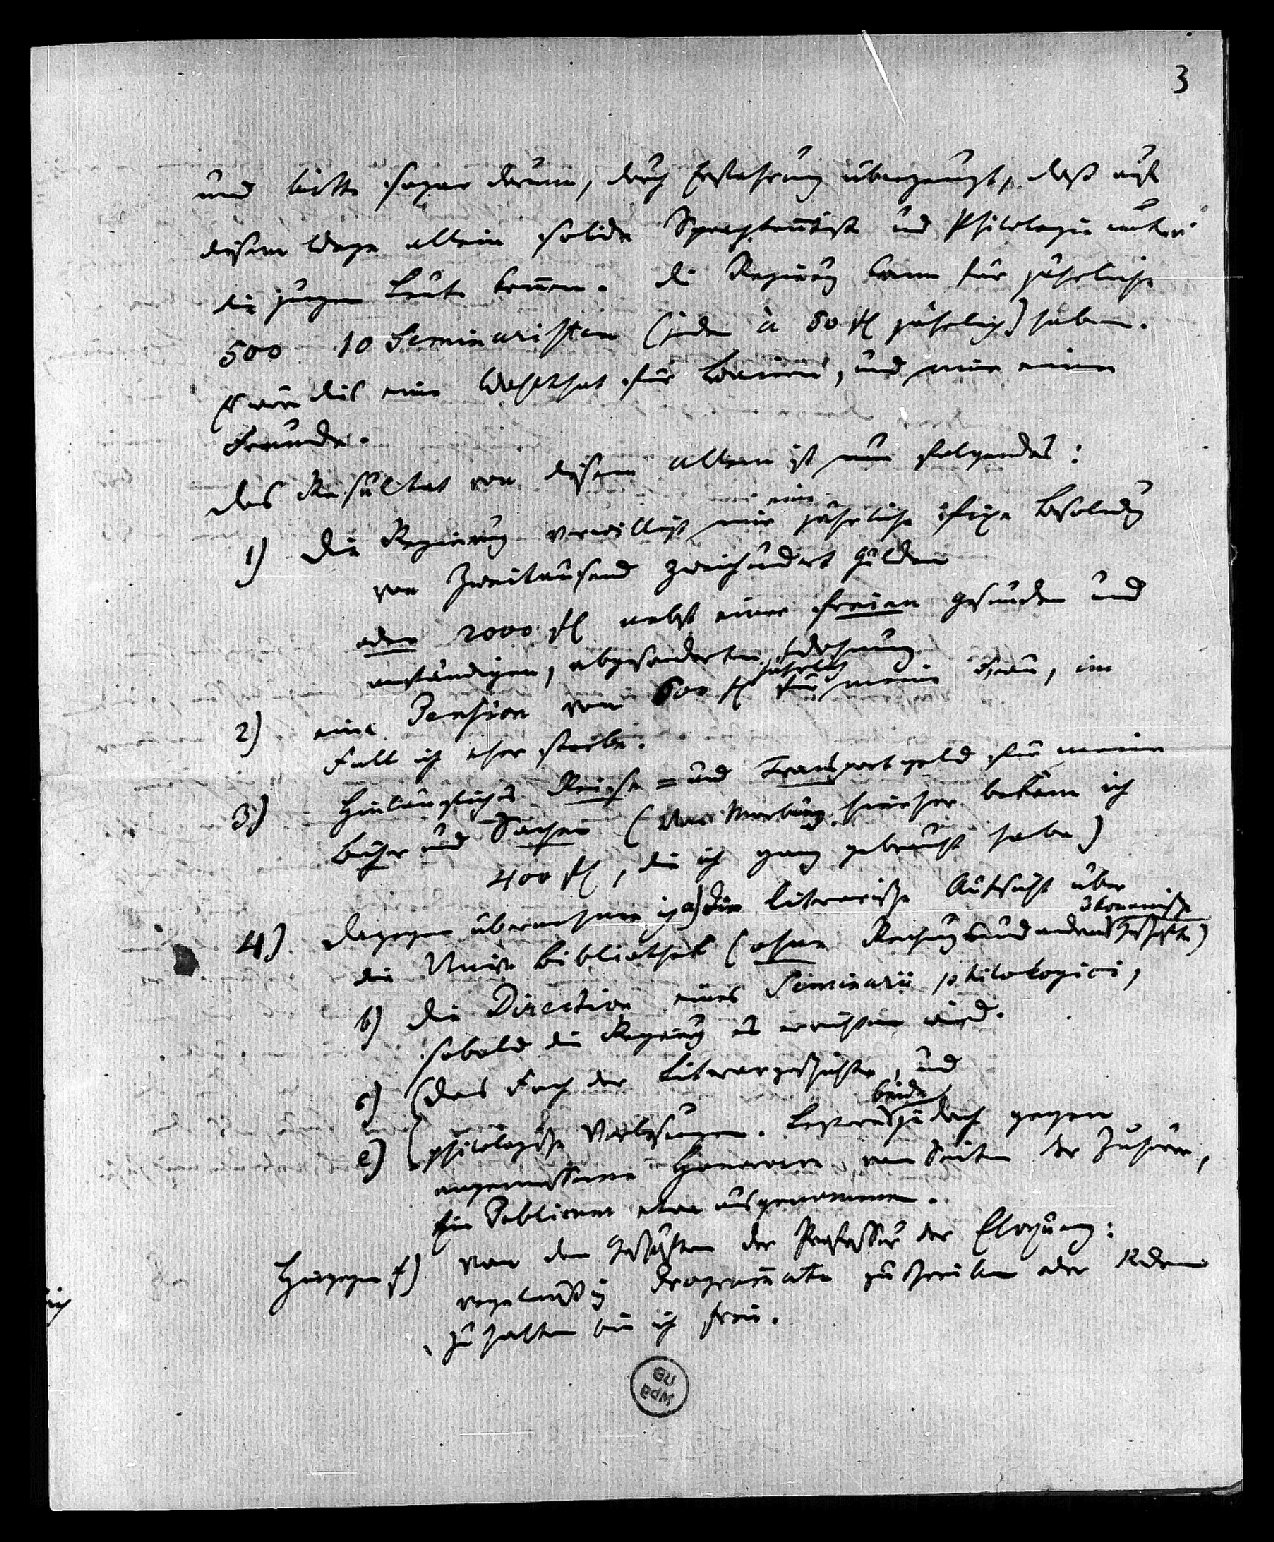 3
und bitte sogar darum, durch Erfahrung überzeugt, daß auf
diesem Wege allein solide Sprachkenntniß und Philologie unter
die jungen Leute komme. Die Regierung kann für jährliche
500 10 Seminaristen (jeden à 50 fl jährlich) haben.
Es wäre dies eine Wohlthat für Baiern, und mir eine
Freude.
Das Resultat von diesem allem ist nun folgendes:
1) Die Regierung verwilligt mir eine jährliche fixe Besoldung
von Zweitausend zweihundert Gulden
oder 2000 fl nebst einer freien gesunden und
anständigen, abgesonderten Wohnung
2) eine Pension von 600 fl jährlich für meine Frau, im
Fall ich eher sterbe.
3) Hinlängliches Reise- und Transportgeld für meine
Bücher und Sachen (von Marburg hieher bekam ich
400 fl, die ich ganz gebraucht habe)
4) Dagegen übernehme ich a) die literarische Aufsicht über
die Univ. Bibliothek (ohne Rechnungs und andere ökonomische Geschäfte)
b) die Direction eines Seminarii philologici,
sobald die Regierung es errichten wird.
c) (das Fach der Literargeschichte, und
e) (philologische Vorlesungen. Letztere beide jedoch gegen
angemessene Honorare von Seiten der Zuhörer,
ein Publicum etwa ausgenommen.
Hingegen f) von den Geschäften der Professur der Eloquenz:
regelmäßig Programmata zu schreiben oder Reden
zu halten bin ich frei.